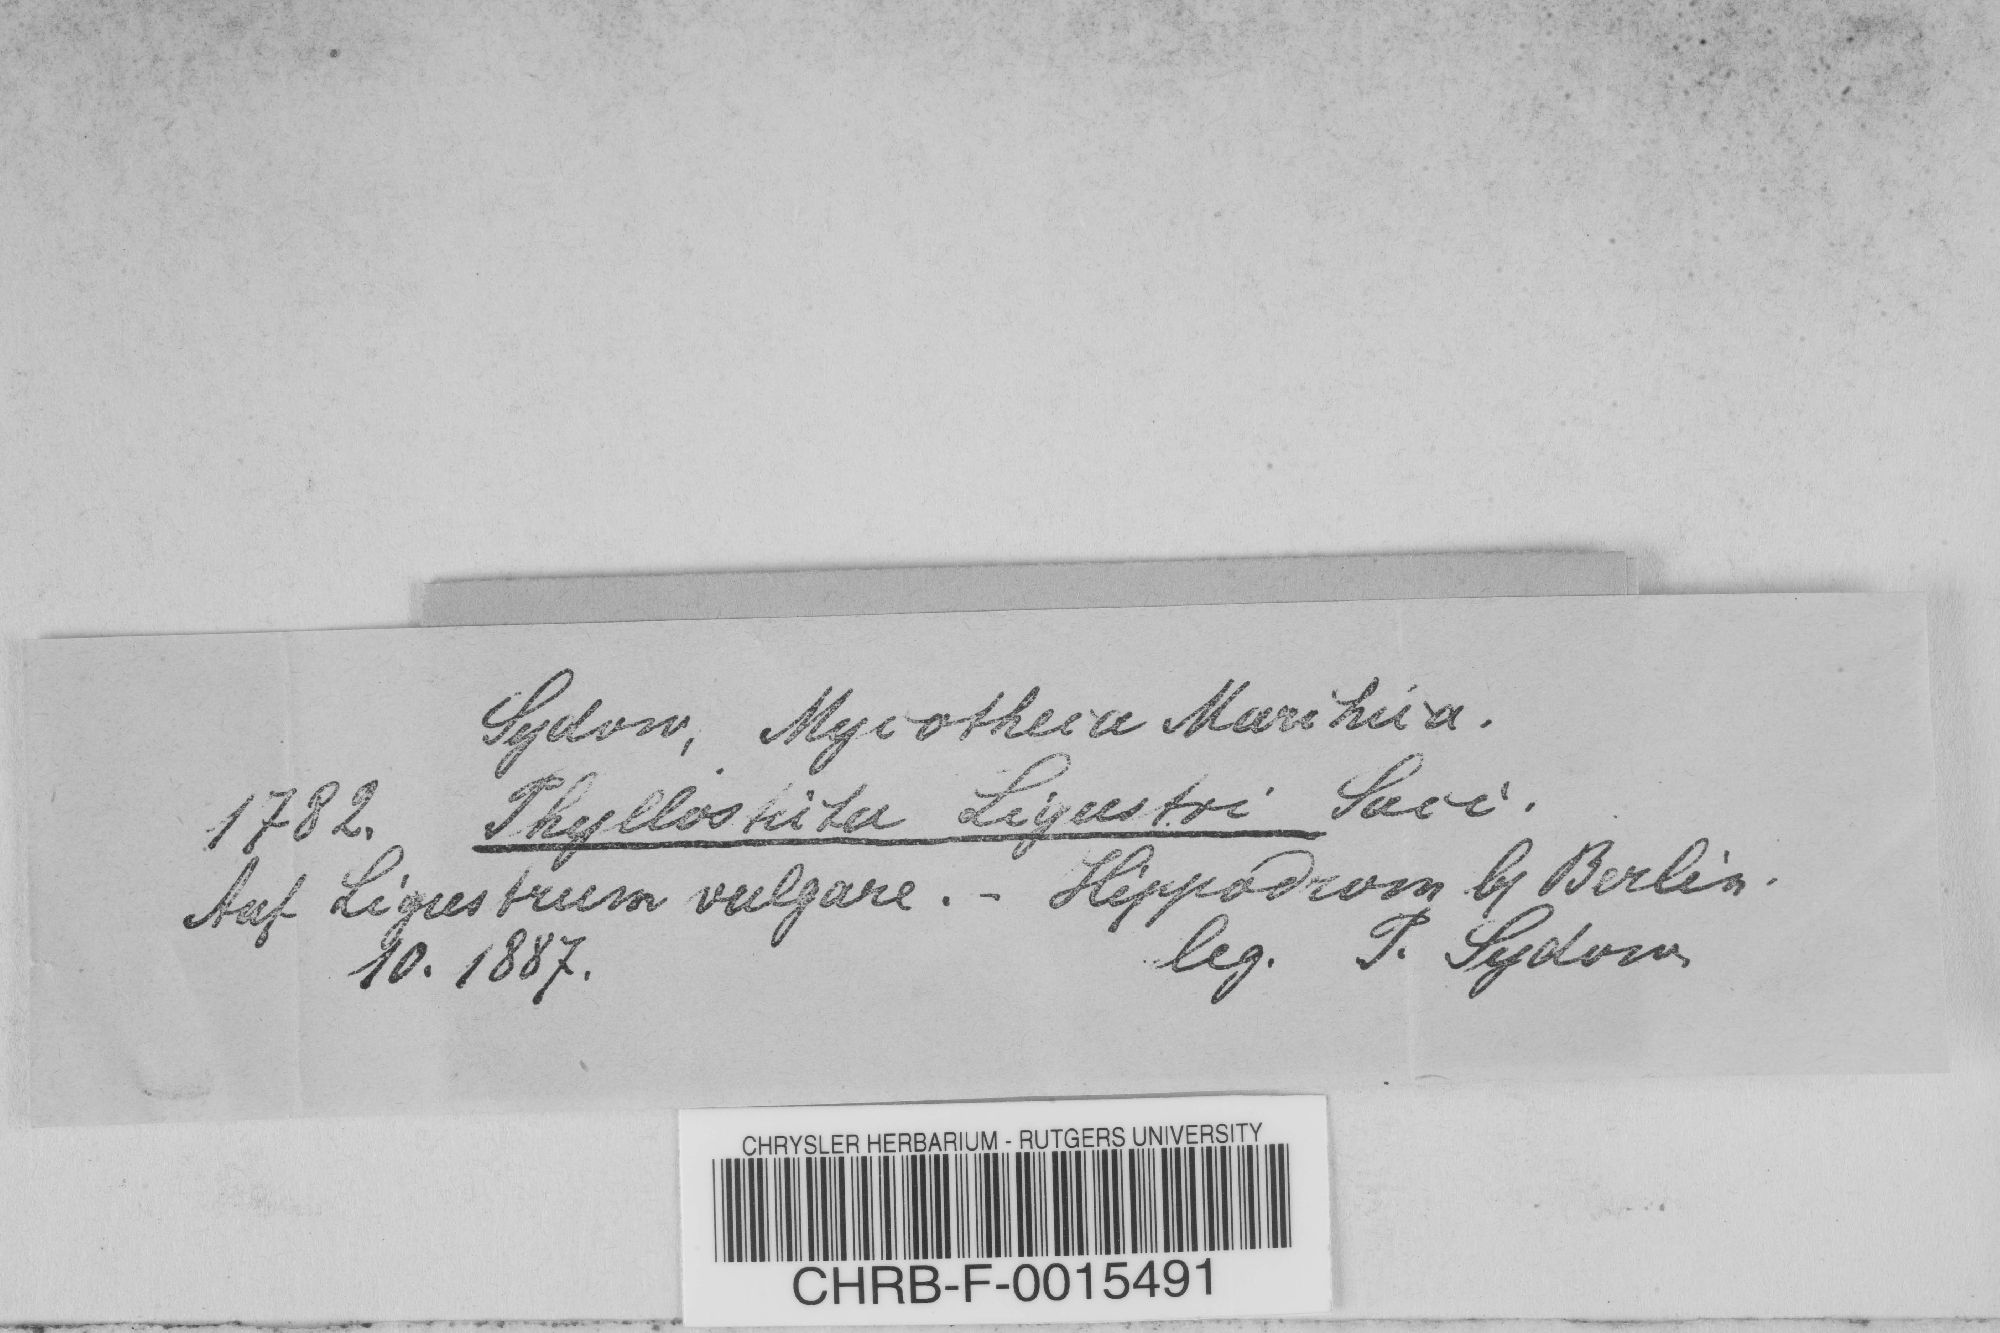 Sydow, Mycotheca Marchica.
1782. Phyllosticta Ligustri Sacc.
Auf Ligustrum vulgare. - Hippodrom b/ Berlin.
10. 1887. leg. P. Sydow
CHRYSLER HERBARIUM - RUTGERS UNIVERSITY
CHRB-F-0015491